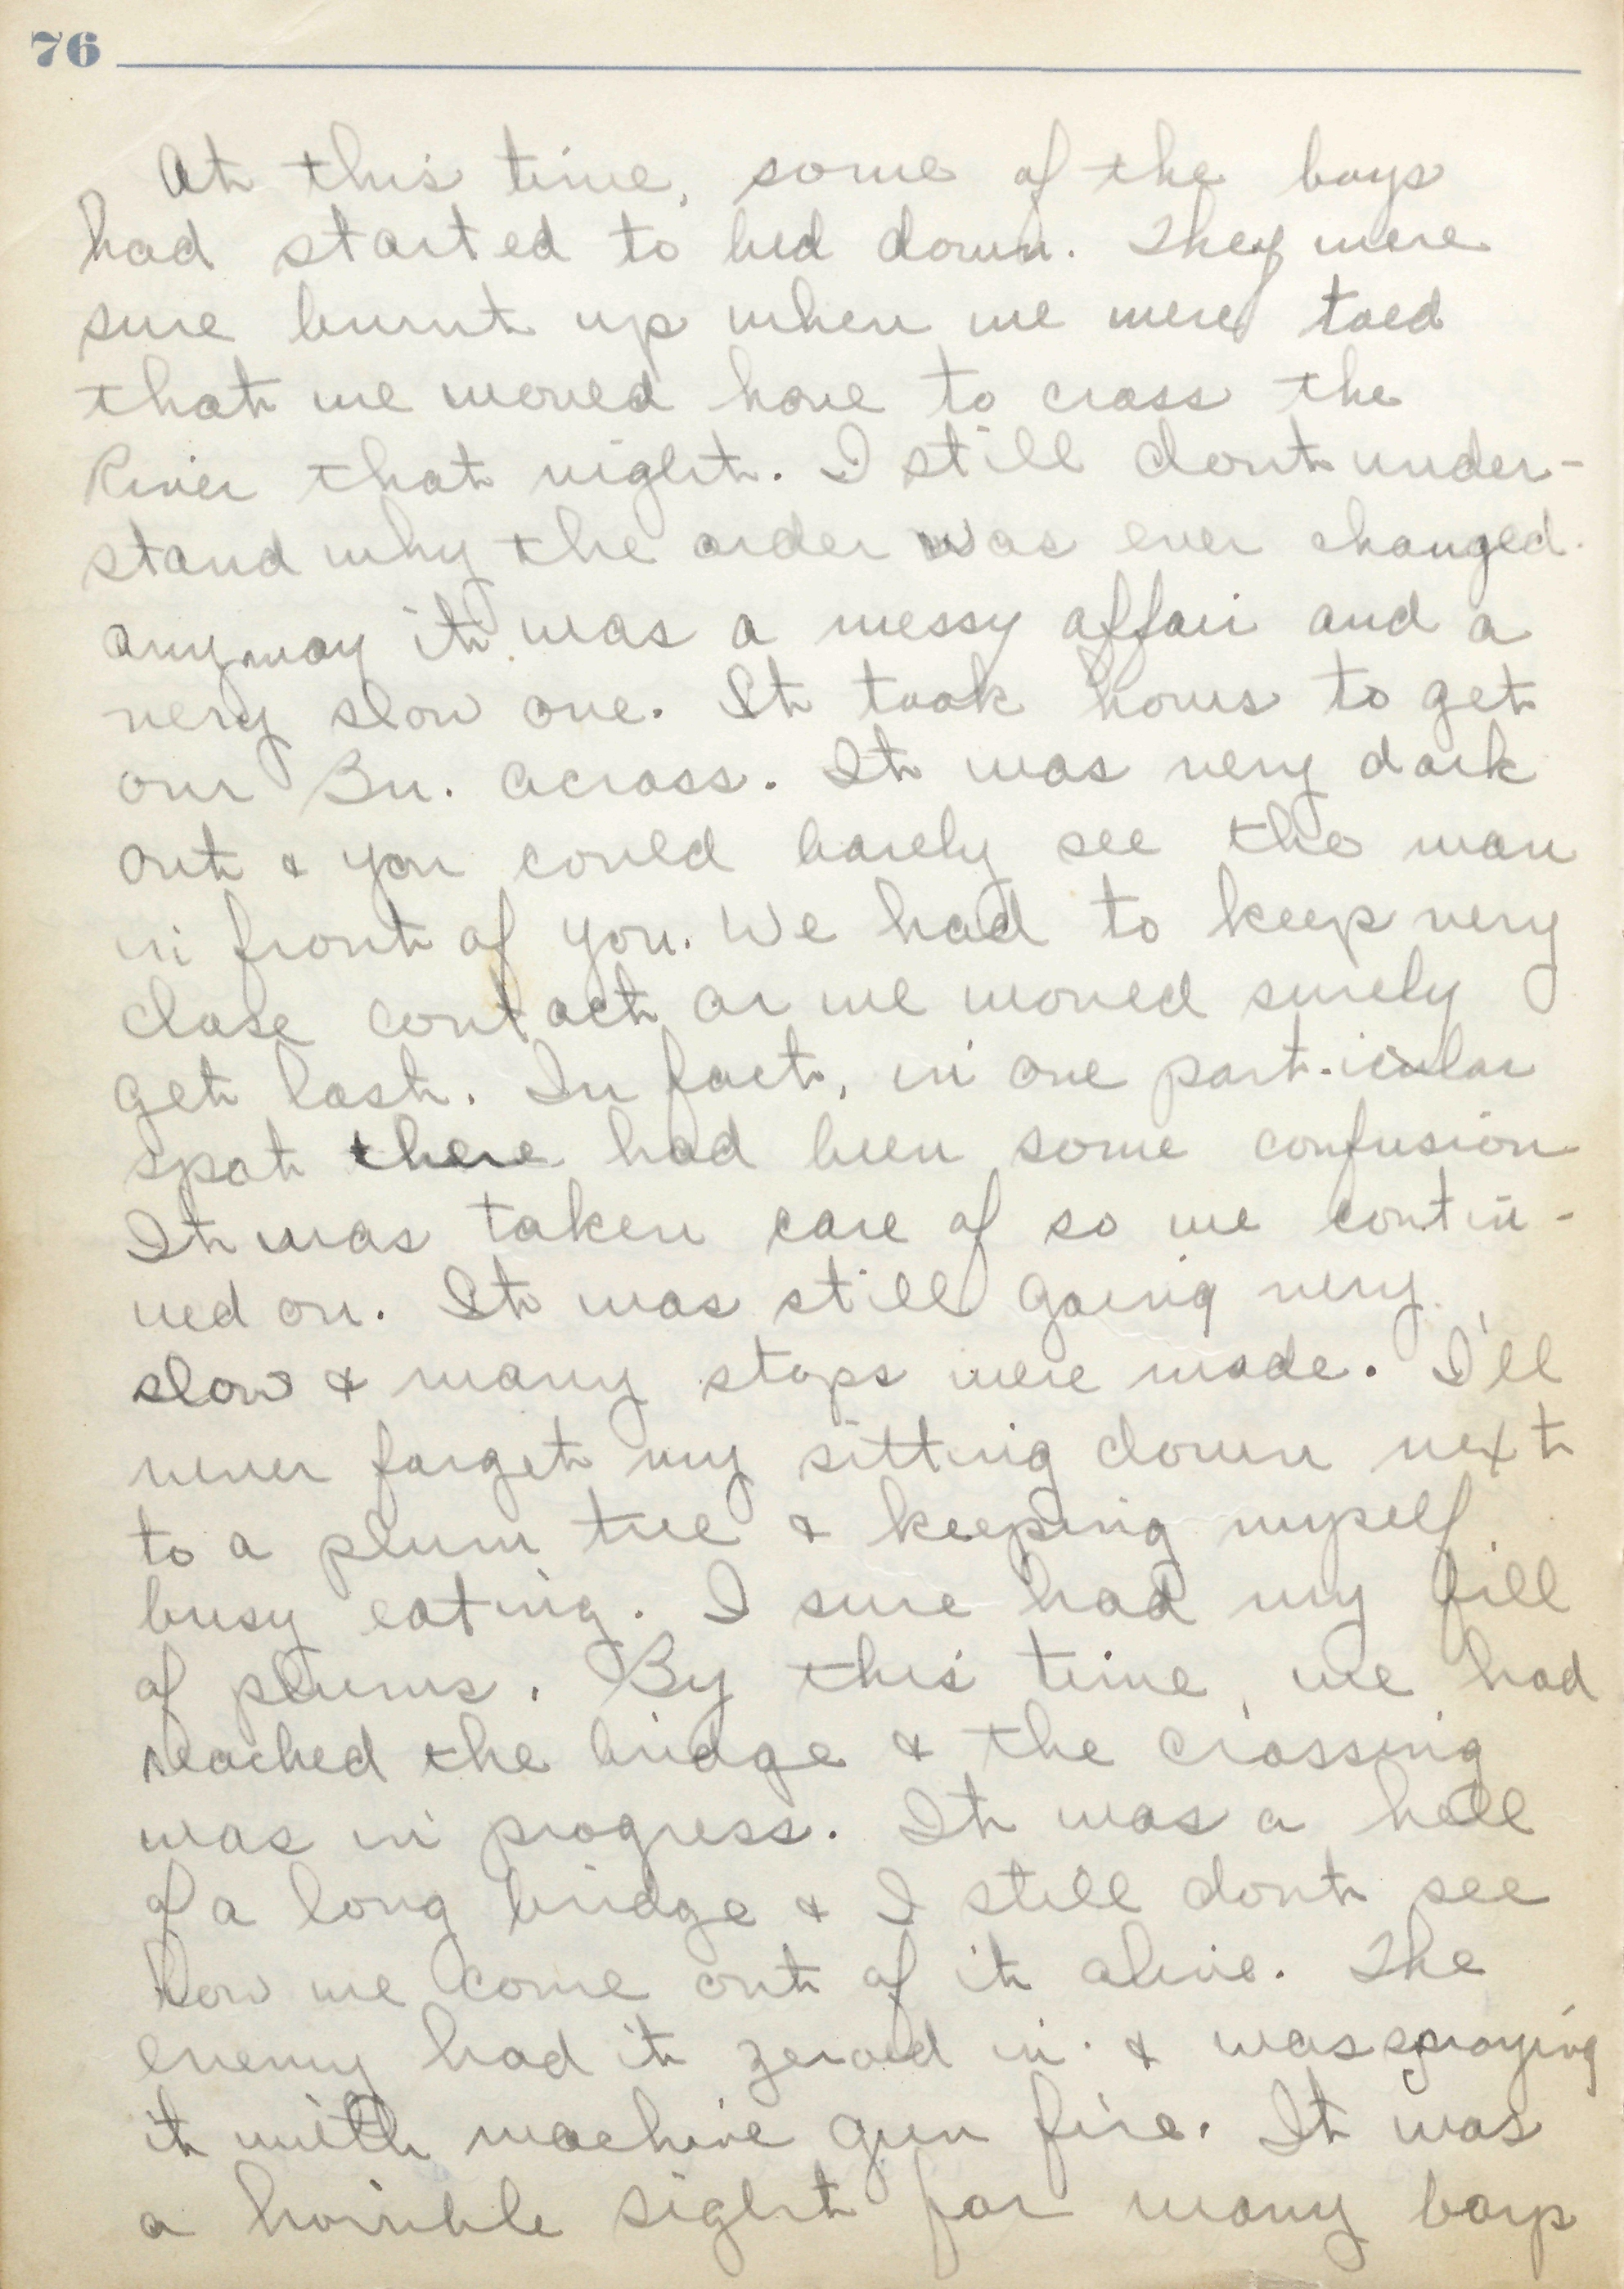 76
At this time, some of the boys
had started to bed down. They were
sure burnt up when we were told
that we would have to cross the
River that night. I still dont under-
stand why the order was ever changed.
Anyway it was a messy affair and a
very slow one. It took hours to get
our Bn. across. It was very dark
out & you could barely see the man
in front of you. We had to keep very
close contact or we would surely
get lost. In fact, in one part-icular
spot there had been some confusion
It was taken care of so we contin-
ued on. It was still going very
slow & many stops were made. I'll
never forget my sitting down next
to a plum tree & keeping myself
busy eating. I sure had my fill
of plums. By this time, we had
reached the bridge & the crossing
was in progress. It was a hell
of a long bridge & I still dont see
how we come out of it alive. The
enemy had it zeroed in & was spraying
it with machine gun fire. It was
a horrible sight for many boys